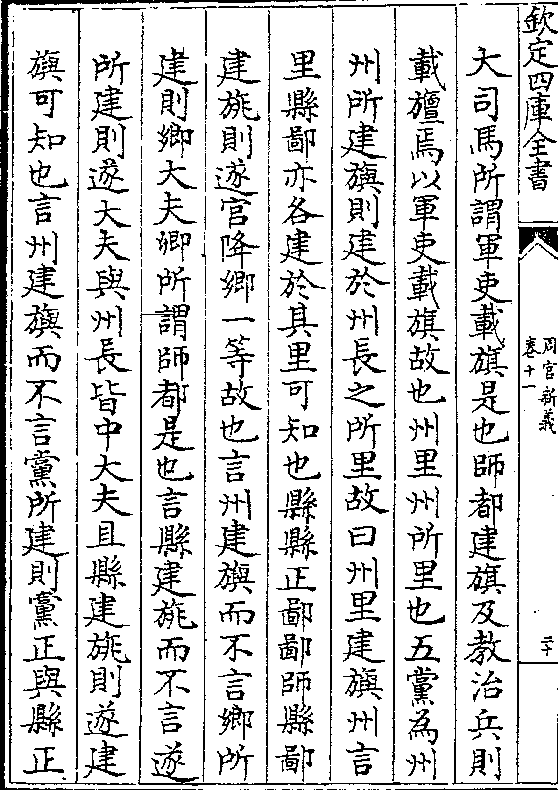 欽定四庫全書
周官新義
卷十一
二十
大司馬所謂軍吏載旗是也師都建旗及教治兵則
載旜焉以軍吏載旗故也州里州所里也五黨為州
州所建旟則建於州長之所里故曰州里建旟州言
里縣鄙亦各建於其里可知也縣縣正鄙鄙師縣鄙
建旐則遂官降鄉一等故也言州建旟而不言鄉所
建則鄉大夫卿所謂師都是也言縣建旐而不言遂
所建則遂大夫與州長皆中大夫且縣建旐則遂建
旟可知也言州建旟而不言黨所建則黨正與縣正